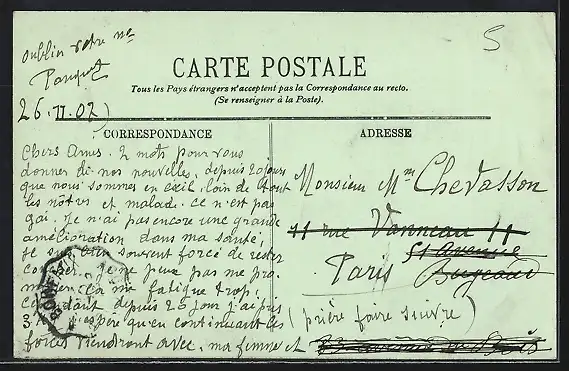 5
oublier votre
26.11.07)
CARTE POSTALE
Tous les Pays étrangers n'acceptent pas la Correspondance au recto.
(Se renseigner à la Poste).
CORRESPONDANCE
Chers Amis. 2 mots pour vous
donner de nos nouvelles, depuis 20 jours
que nous sommes en exil. loin de tout
les nôtres et malade. ce n'est pas
gai. Je n'ai pas encore une grande
amélioration dans ma santé,
Je suis bien souvent forcé de rester
Je ne peux pas me pro
ça me fatigue trop,
depuis 20 jour j'ai pris
3 j'espère qu'en continuant les
forces viendront avec, ma femme et
ADRESSE
Monsieur Mme Chevasson
11 rue Vanneau 11
51 avenue
Bugeaud
Paris
(prière faire suivre)